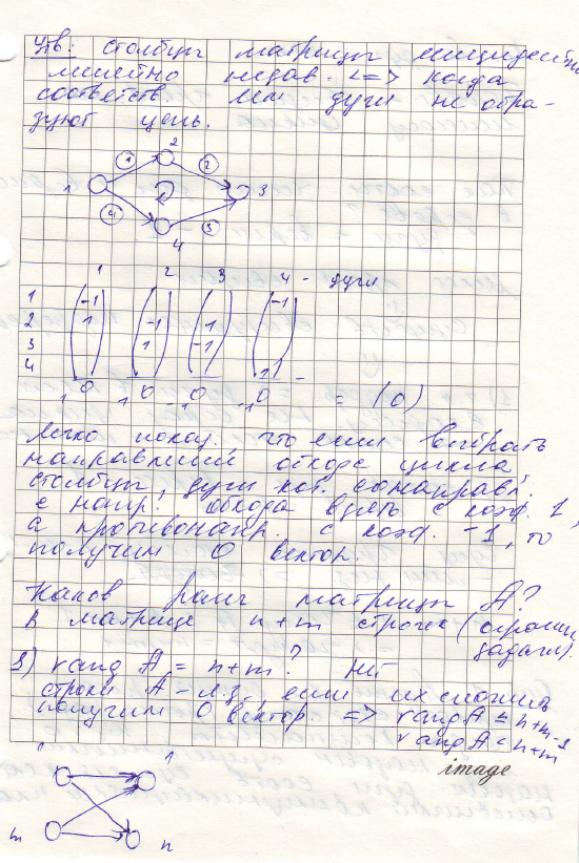 Утв: столбцы матрицы инцидентн
линейно незав. <=> когда
соответств. им дуги не обра-
зуют цепь.
1 2 3 4
① ② ③ ④
1 2 3 4 - дуги
1 -1 -1
2 1 -1 1
3 1 -1
4 1
0 0 0 0 = (0)
Легко показ., что если выбрать
направлений обхода цикла,
столбцы, дуги кот. сонаправл.
с напр. обхода взять с коэф. 1,
а противонапр. с коэф. -1, то
получим 0 вектор.
Каков ранг матрицы A?
В матрице n+m строчек (огранич.
задачи).
1) rang A = n+m? нет
строки A - л.з., если их сложить
получим 0 вектор => rang A ≤ n+m-1
rang A < n+m
image
1 1
m n